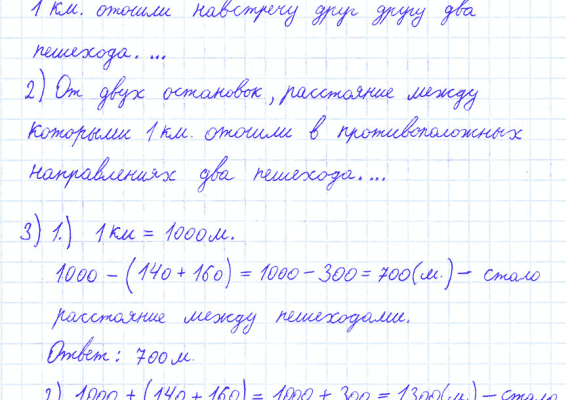 1 км. отошли навстречу друг другу два
пешехода. ...
2) От двух остановок, расстояние между
которыми 1 км. отошли в противоположных
направлениях два пешехода. ...
3) 1.) 1 км = 1000 м.
1000 - (140 + 160) = 1000 - 300 = 700 (м.) - стало
расстояние между пешеходами.
Ответ: 700 м.
2) 1000 + (140 + 160) = 1000 + 300 = 1300 (м.) - стало